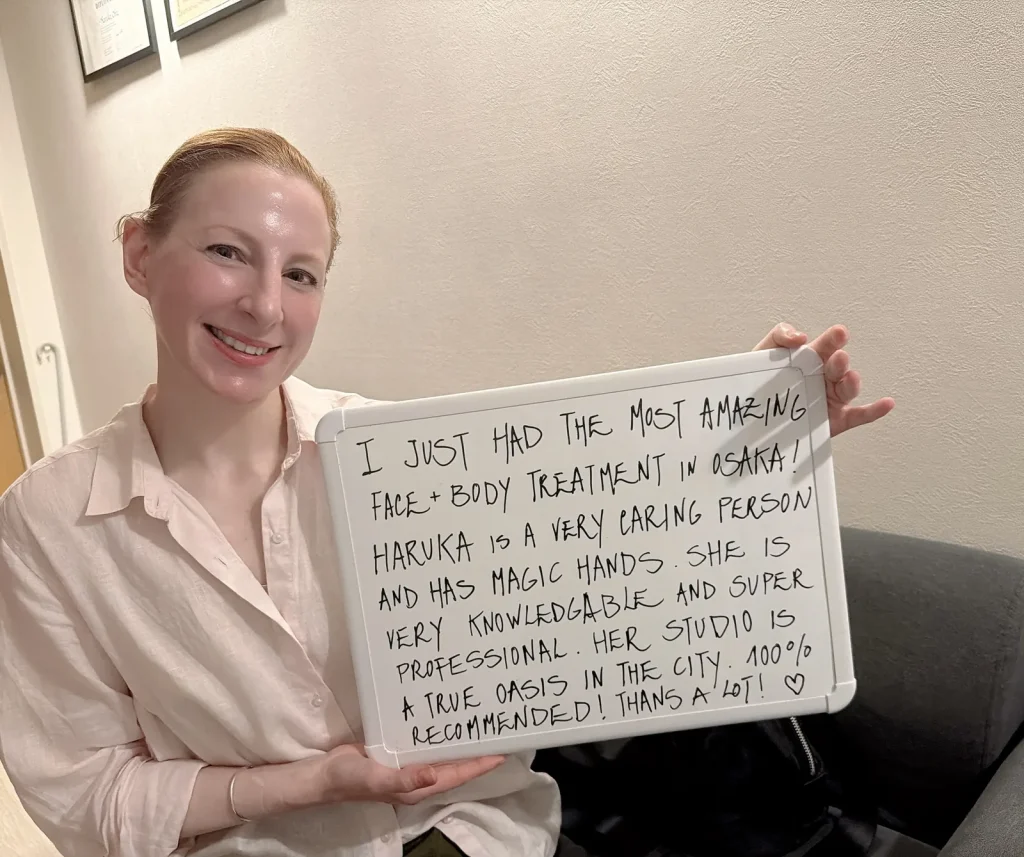 I JUST HAD THE MOST AMAZING
FACE + BODY TREATMENT IN OSAKA!
HARUKA IS A VERY CARING PERSON
AND HAS MAGIC HANDS. SHE IS
VERY KNOWLEDGABLE AND SUPER
PROFESSIONAL. HER STUDIO IS
A TRUE OASIS IN THE CITY. 100%
RECOMMENDED! THANS A LOT! ♡